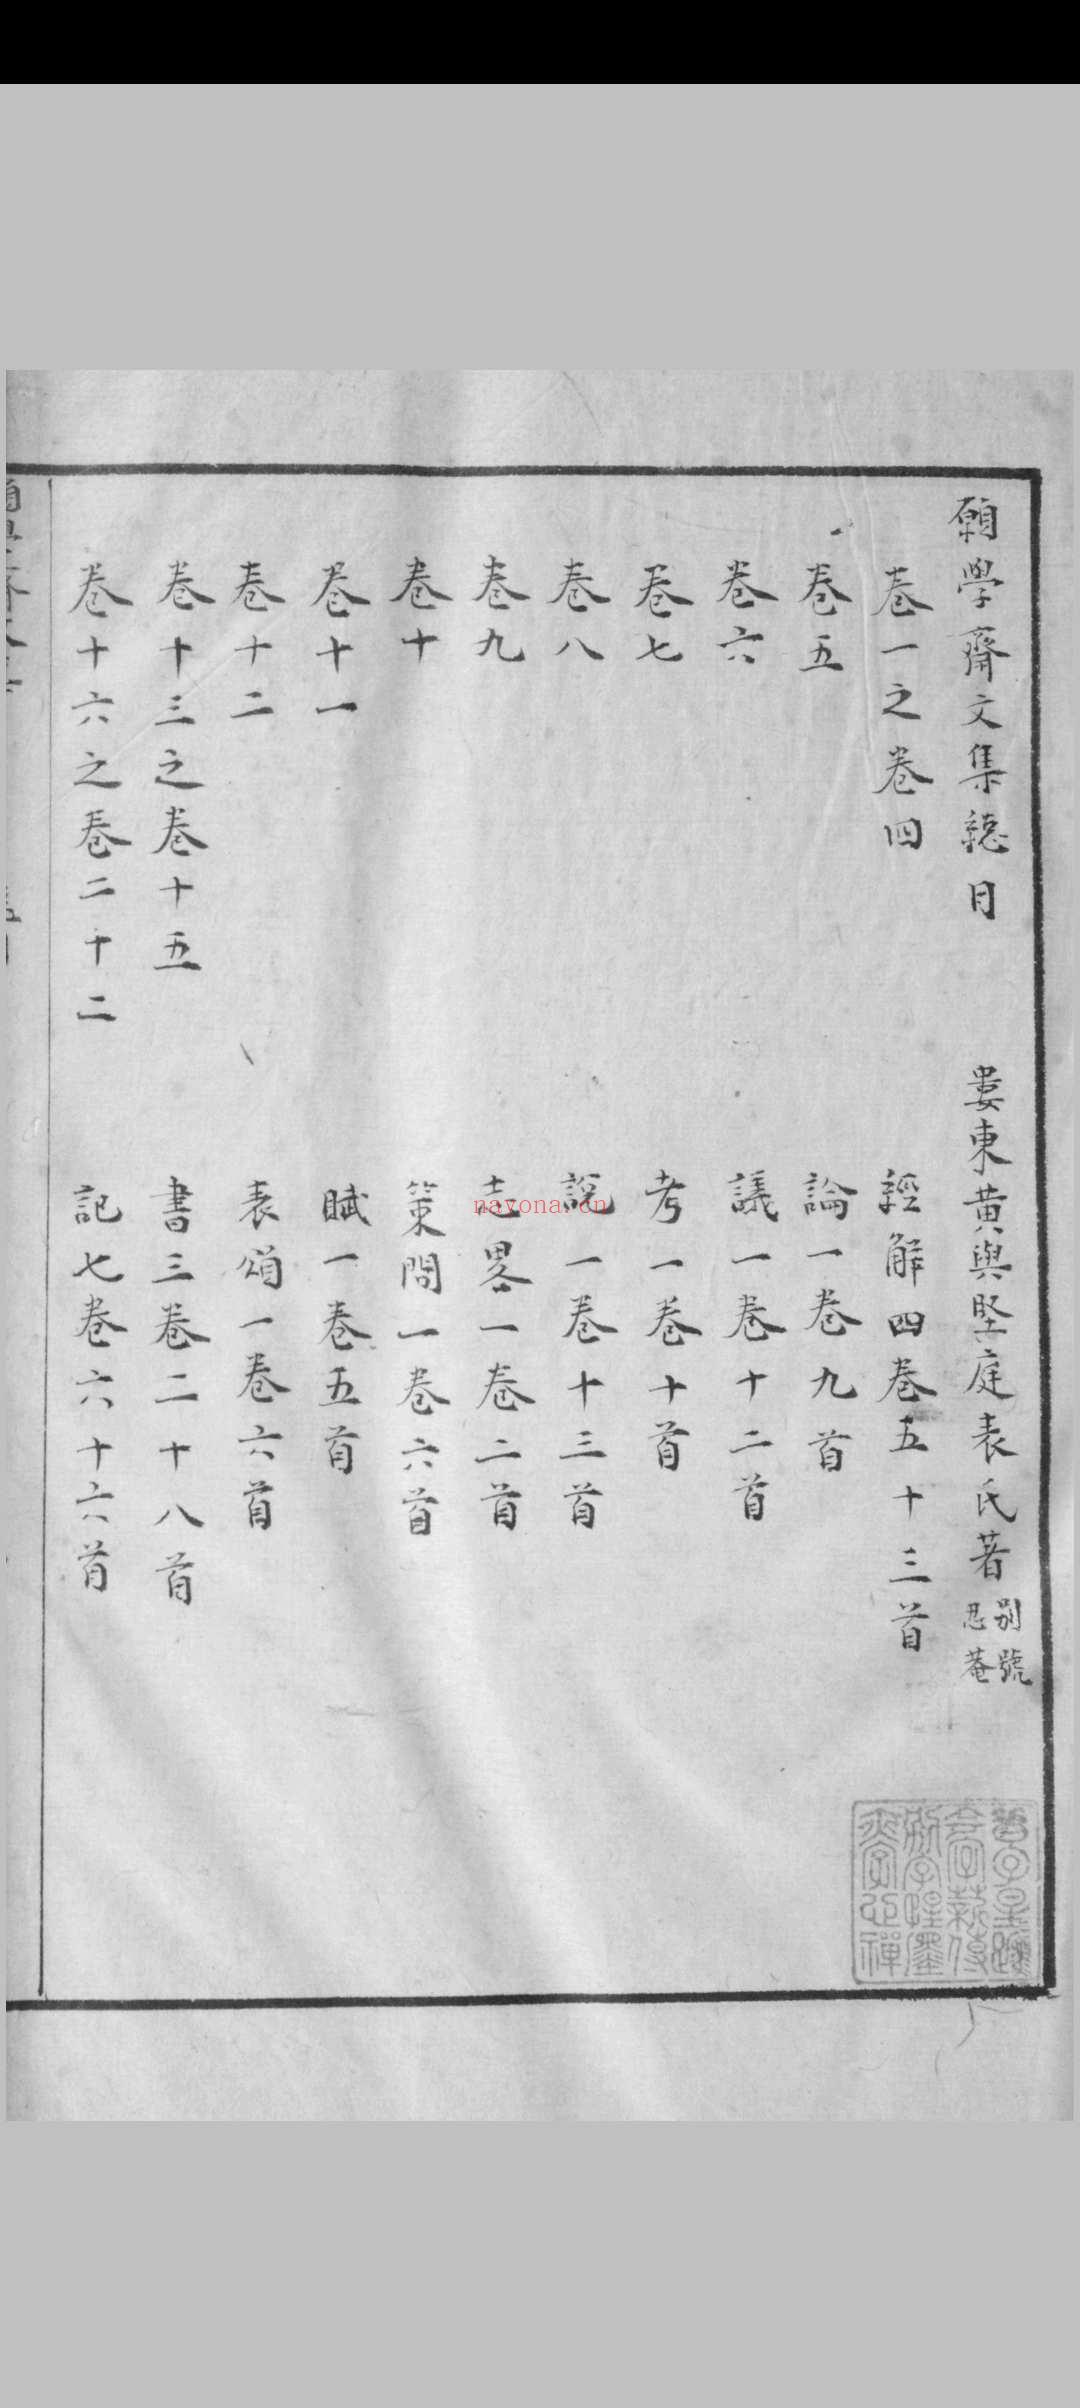 願學齋文集總目 婁東黄與堅庭表氏著 别號忍菴
卷一之卷四 經解四卷五十三首
卷五 論一卷九首
卷六 議一卷十二首
卷七 考一卷十首
卷八 說一卷十三首
卷九 志畧一卷二首
卷十 策問一卷六首
卷十一 賦一卷五首
卷十二 表頌一卷六首
卷十三之卷十五 書三卷二十八首
卷十六之卷二十二 記七卷六十六首
nayona.cn